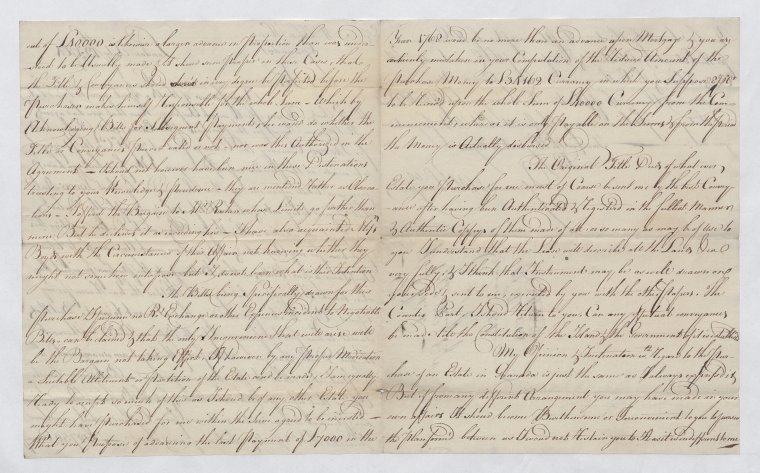 out of £40000 is likewise a larger advance in proportion than was under-
stood to be Usually made & it should seem proper in this Case, that
the Titles & Conveyances should in any degree be perfected before the
Purchaser makes himself Responsible for the whole Sum — Which by
Accepting Bills for Subsequent Payments, he would do whether the
Titles or Conveyances proved valid or not — nor was this Authorised in the
Agreement — I should not however have been nice in these Distinctions
trusting to your Knowledge & Prudence — they are mentioned rather as Observa-
tions —
more But he declines it as
with the Circumstances of this Affair, not knowing whether they
might not some how interfere but I do not know what is their Intention
The Bills being Specifically drawn for this
Purchase No Premium, Re Exchange or other Consequences incident to Negotiable
Bills, can be claimed & that the only Inconvenience that will arise will
be the Bargain not taking Effect. If however by any proper Moderation
a Suitable Allotment or Partition of the Estate can be made, I am perfectly
ready to accept so much of this as I should of any other Estate you
might have purchased for me within the Sum agreed to be invested —
What you propose of advancing the last Payment of £7000 in the
Year 1768 would be no more than an advance upon Mortgage & you are
entirely mistaken in your Computation of the Actual Amount of the
Purchase Money to Currency in which you Suppose
to be Issued upon the whole Sum of £40000 Currency from the Com-
mencement, whereas it is only payable on the Sums & from the Periods
the Money is Actually disbursed
The Original Titles Deeds of what ever
Estate you Purchase for me must of Course be sent me by the best Convey-
ance after having been Authenticated & Registered in the fullest Manner
& Authentic Copys of them made of all or so many as may be of use to
You I understand that the Law will describe all the Lands &ca
very fully, & I think that Instrument may be as well drawn on
your side & sent to me, executed by you with the other Papers. The
Counter Part, I should return to you Can any Special conveyance
be made till the Constitution of the Island & the Government of it is established
My Opinion & Inclination in regard to the Pur-
chase of an Estate in Grenada is just the same as I always expressed it
But if from any different Arrangement you may have made in your
own affairs It should become Burthensome or Inconvenient to you to pursue
the plan formed between us I would not Restrain you to Prosecute